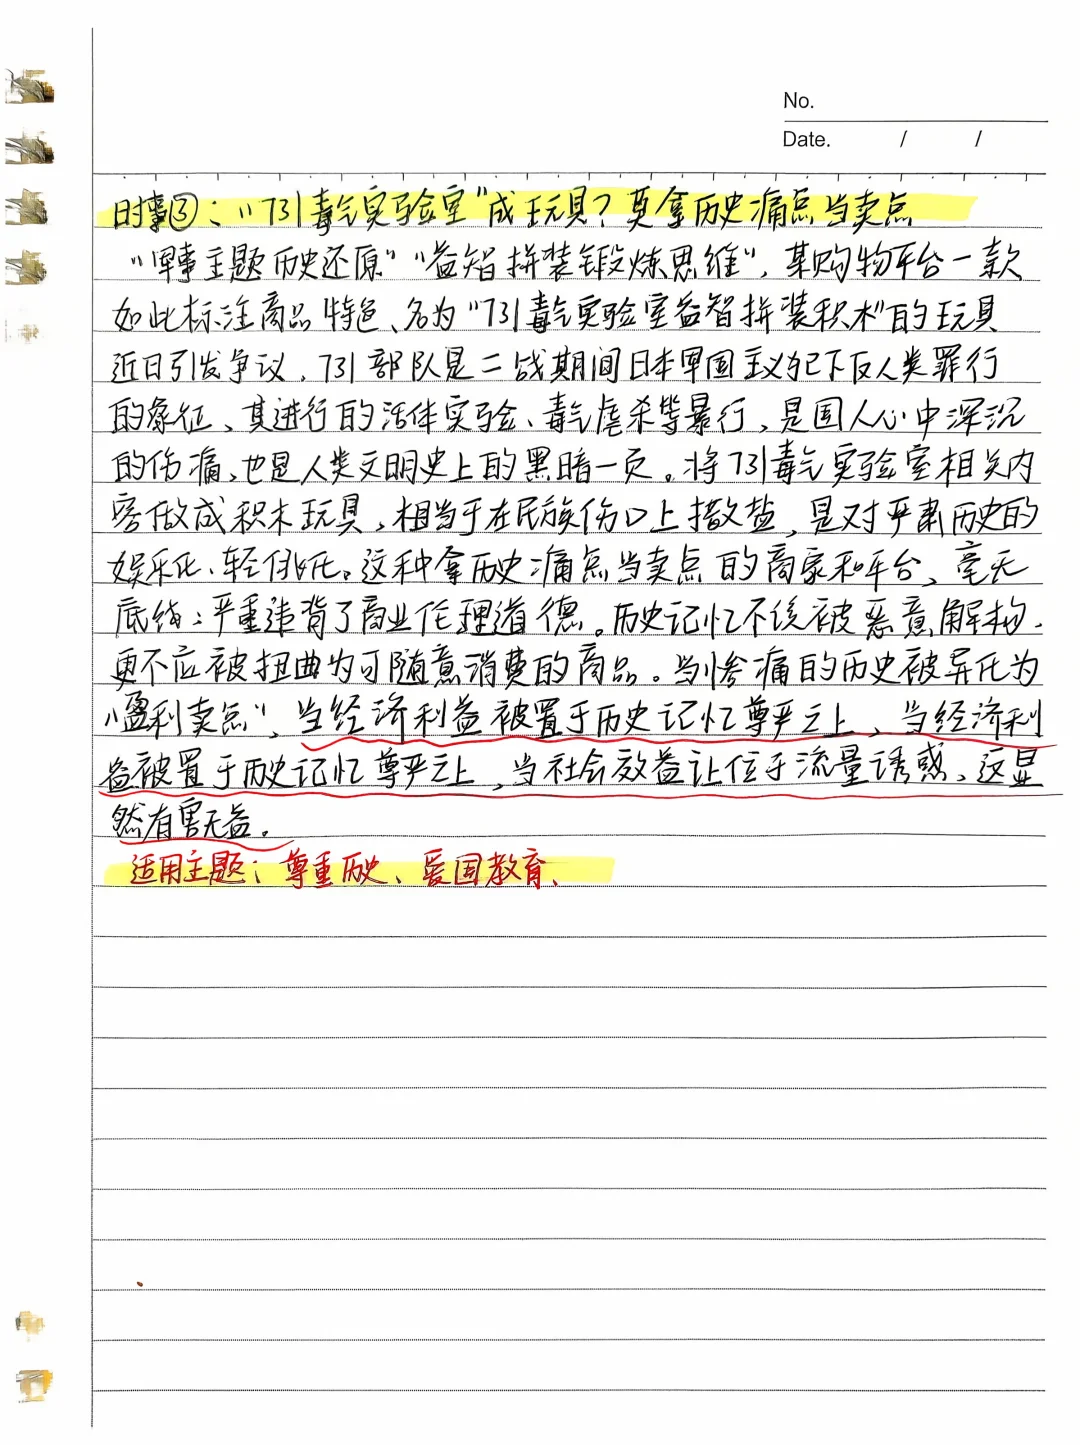 No.
Date. / /
时事③："731毒气实验室"成玩具？莫拿历史痛点当卖点
"军事主题历史还原""益智拼装锻炼思维"，某购物平台一款
如此标注商品特色、名为"731毒气实验室益智拼装积木"的玩具
近日引发争议，731部队是二战期间日本军国主义犯下反人类罪行
的象征、其进行的活体实验、毒气虐杀等暴行，是国人心中深沉
的伤痛、也是人类文明史上的黑暗一页。将731毒气实验室相关内
容做成积木玩具，相当于在民族伤口上撒盐，是对严肃历史的
娱乐化、轻佻化。这种拿历史痛点当卖点的商家和平台、毫无
底线：严重违背了商业伦理道德。历史记忆不该被恶意解构、
更不应被扭曲为可随意消费的商品。当惨痛的历史被异化为
"盈利卖点"，当经济利益被置于历史记忆尊严之上、当经济利
益被置于历史记忆尊严之上，当社会效益让位于流量诱惑、这显
然有害无益。
适用主题：尊重历史、爱国教育、